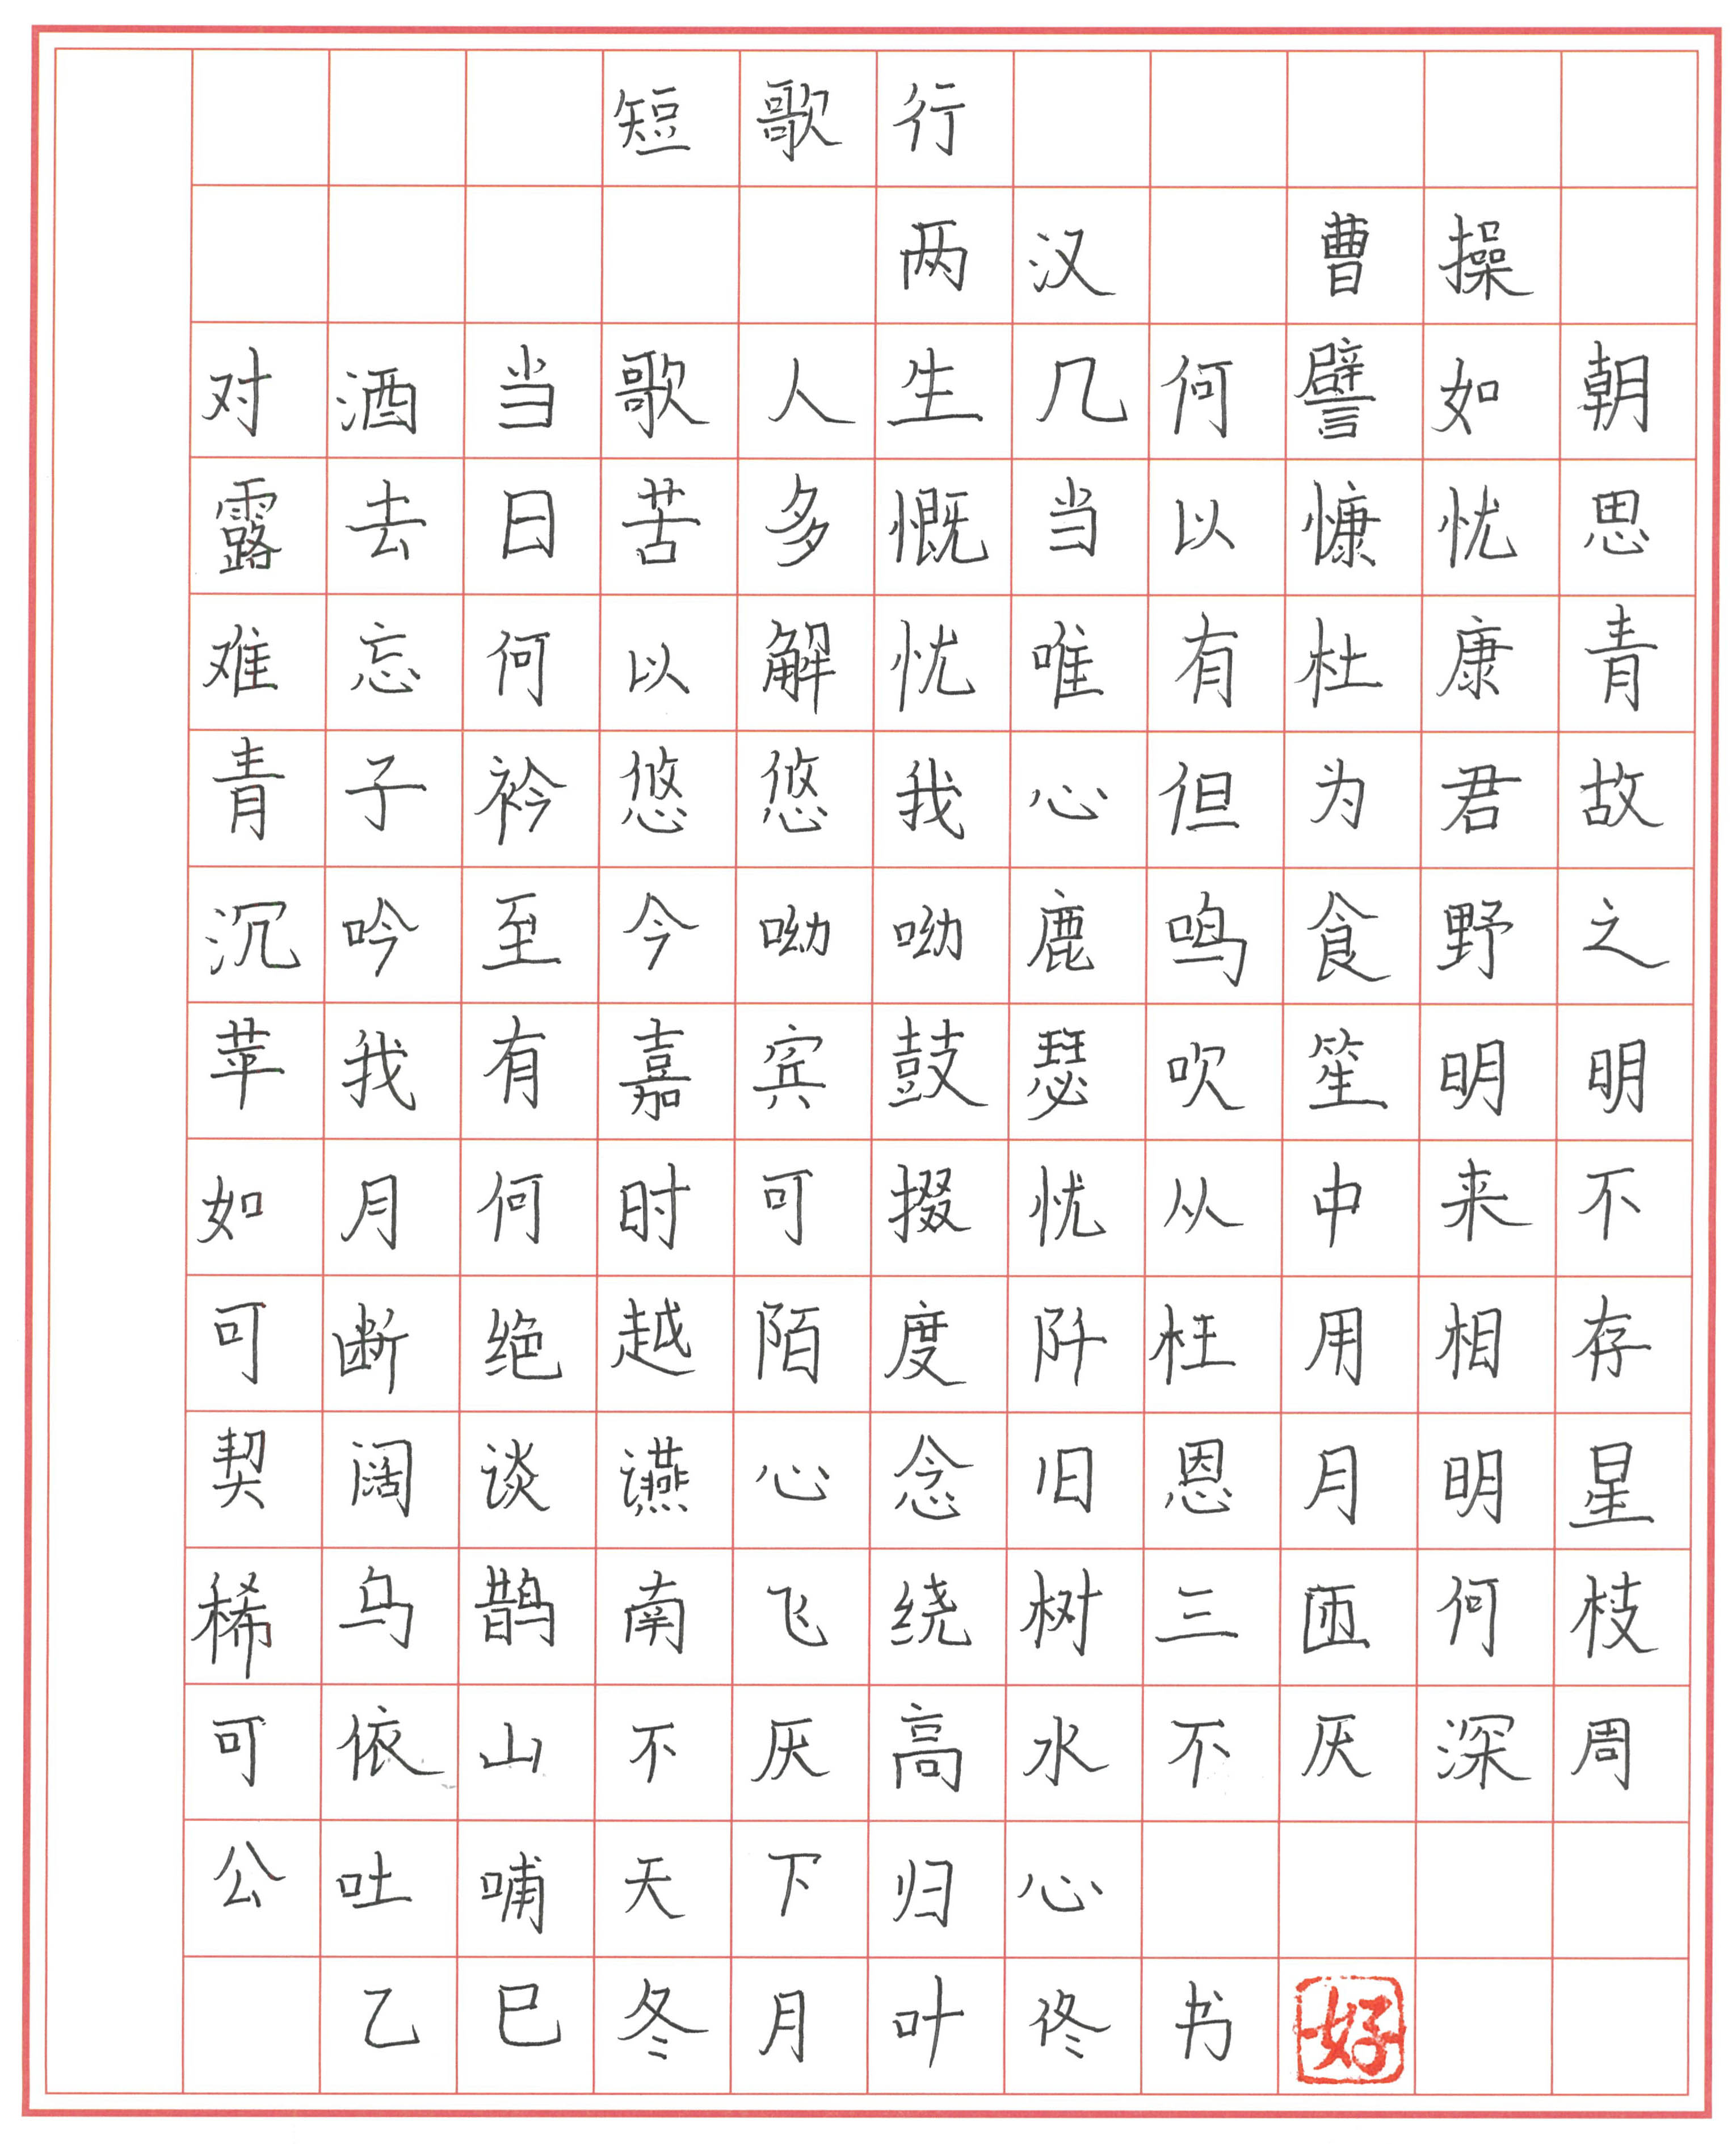 短歌行
两汉 曹操
对酒当歌人生几何譬如朝
露去日苦多慨当以慷忧思
难忘何以解忧唯有杜康青
青子衿悠悠我心但为君故
沉吟至今呦呦鹿鸣食野之
苹我有嘉宾鼓瑟吹笙明明
如月何时可掇忧从中来不
可断绝越陌度阡枉用相存
契阔谈讌心念旧恩月明星
稀乌鹊南飞绕树三匝何枝
可依山不厌高水不厌深周
公吐哺天下归心
乙巳冬月叶佟书 好